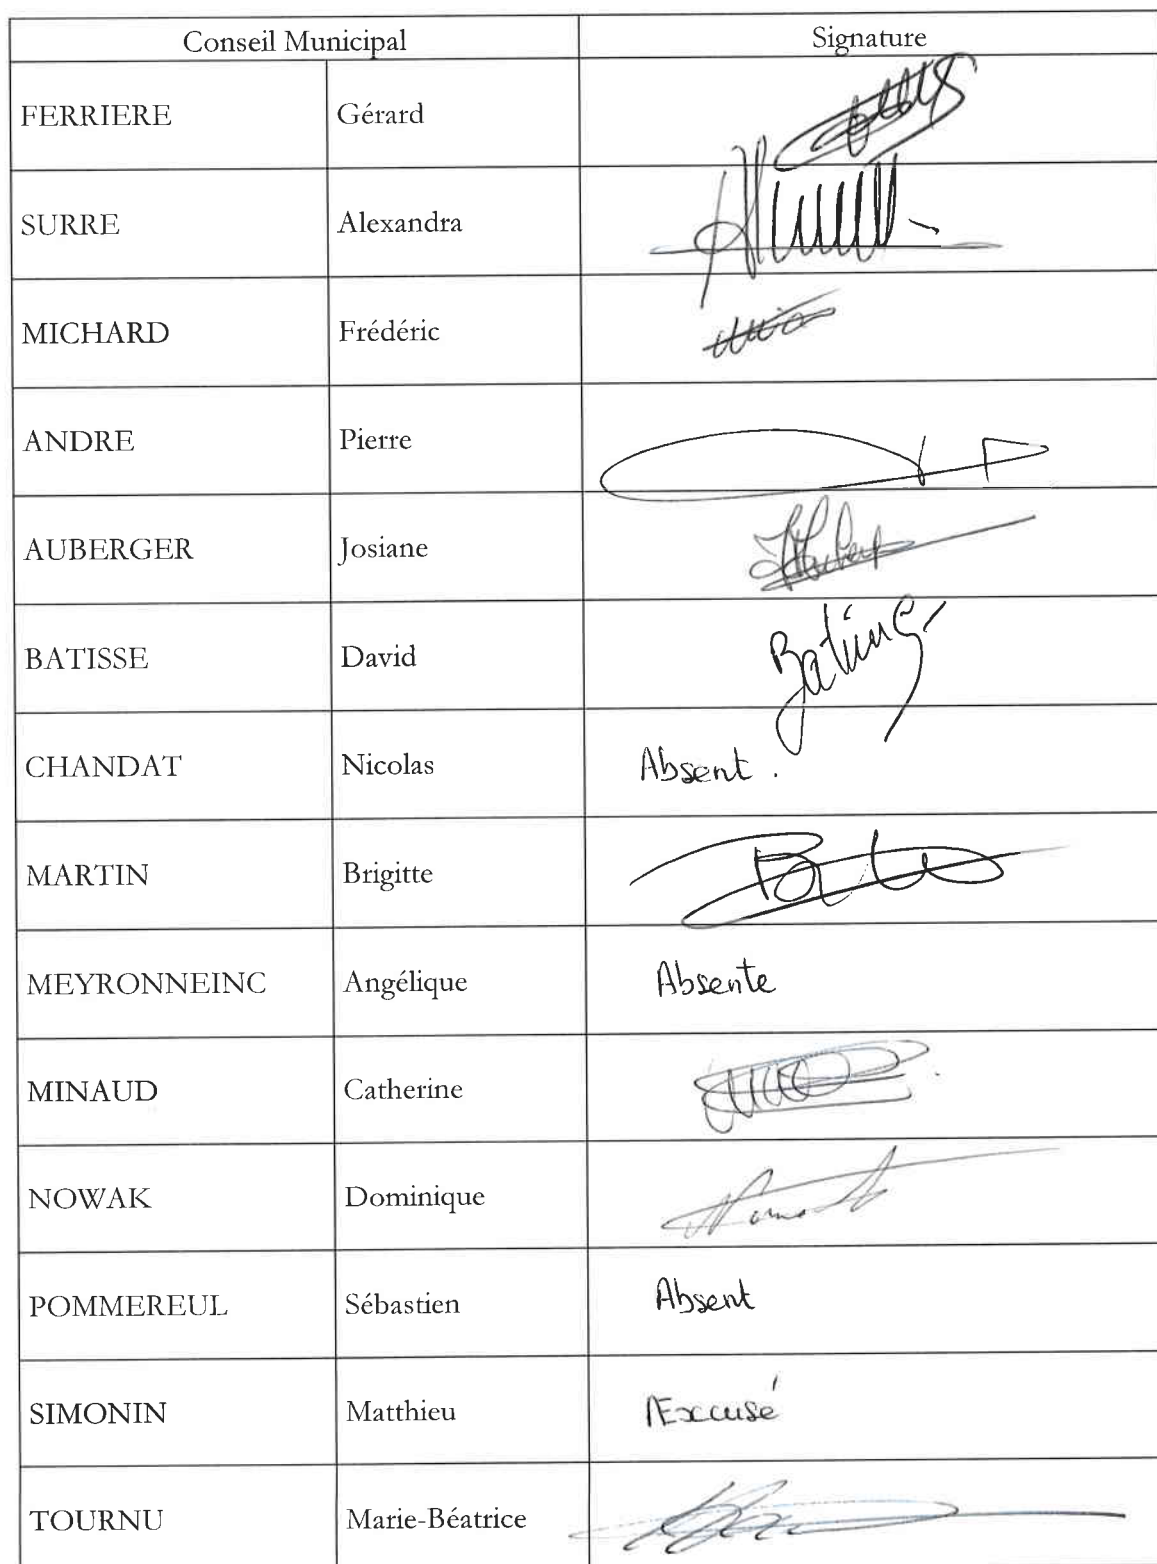 Conseil Municipal Signature
FERRIERE Gérard
SURRE Alexandra
MICHARD Frédéric
ANDRE Pierre
AUBERGER Josiane
BATISSE David
CHANDAT Nicolas Absent.
MARTIN Brigitte
MEYRONNEINC Angélique Absente
MINAUD Catherine
NOWAK Dominique
POMMEREUL Sébastien Absent
SIMONIN Matthieu Excusé
TOURNU Marie-Béatrice